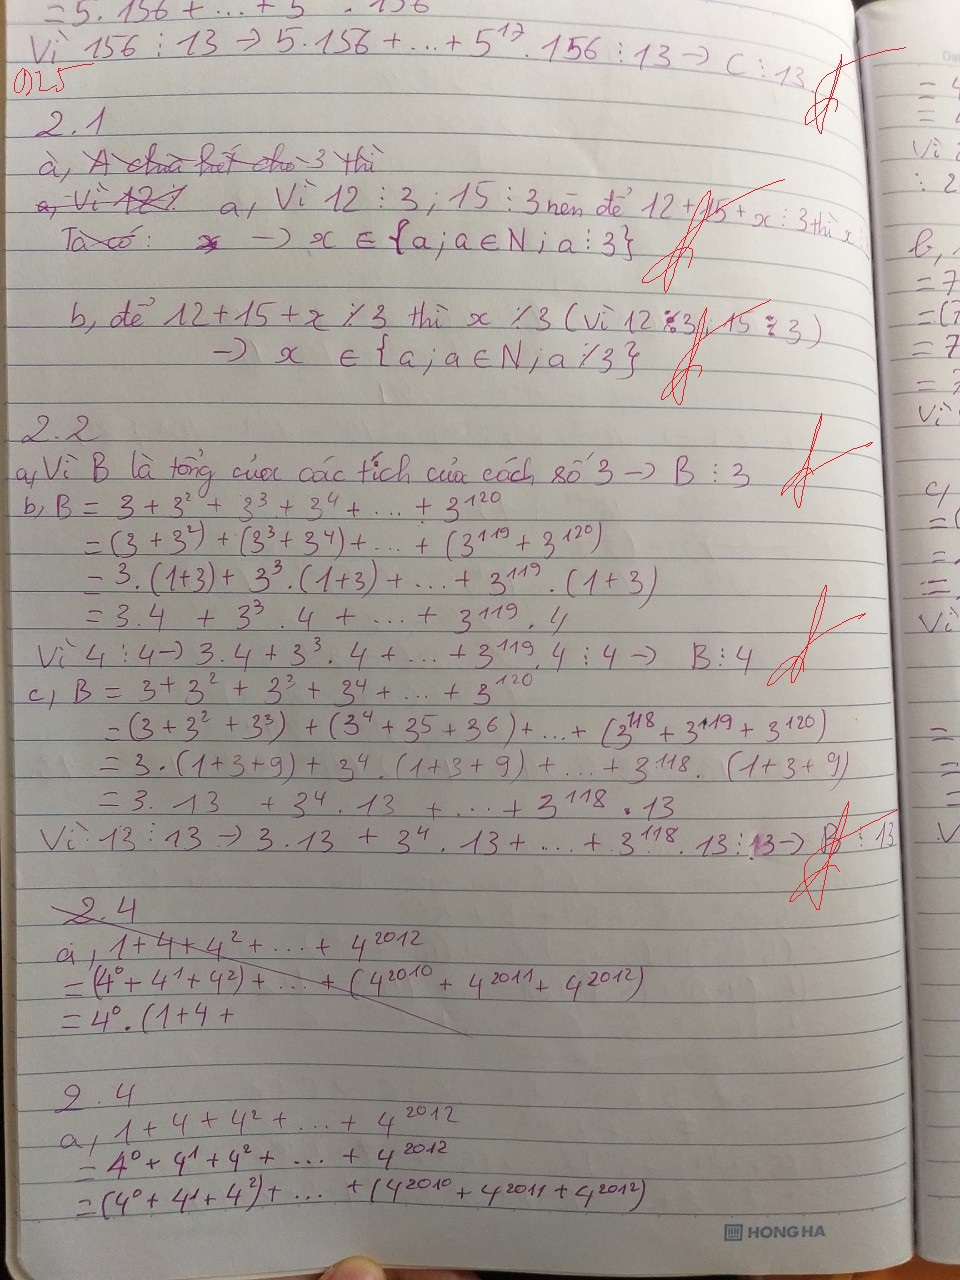 = 5. 156 + ... + 5 . 156
Vì 156 ⋮ 13 → 5.156 + ... + 5¹⁷. 156 ⋮ 13 → C ⋮ 13
0,25
2.1
a, A chia hết cho 3 thì
a, Vì 12 ⋮ a, Vì 12 ⋮ 3 ; 15 ⋮ 3 nên để 12 + 15 + x ⋮ 3 thì x ⋮
Ta có : x → x ∈ {a ; a ∈ N ; a ⋮ 3}
b, để 12 + 15 + x ⋮̸ 3 thì x ⋮̸ 3 (Vì 12 ⋮ 3 ; 15 ⋮ 3)
→ x ∈ {a ; a ∈ N ; a ⋮̸ 3}
2.2
a, Vì B là tổng của các tích của cách số 3 → B ⋮ 3
b, B = 3 + 3² + 3³ + 3⁴ + ... + 3¹²⁰
= (3 + 3²) + (3³ + 3⁴) + ... + (3¹¹⁹ + 3¹²⁰)
= 3. (1+3) + 3³. (1+3) + ... + 3¹¹⁹. (1 + 3)
= 3.4 + 3³. 4 + ... + 3¹¹⁹. 4
Vì 4 ⋮ 4 → 3.4 + 3³. 4 + ... + 3¹¹⁹. 4 ⋮ 4 → B ⋮ 4
c, B = 3 + 3² + 3³ + 3⁴ + ... + 3¹²⁰
= (3 + 3² + 3³) + (3⁴ + 35 + 36) + ... + (3¹¹⁸ + 3¹¹⁹ + 3¹²⁰)
= 3. (1+3+9) + 3⁴. (1+3+9) + ... + 3¹¹⁸. (1+3+9)
= 3. 13 + 3⁴. 13 + ... + 3¹¹⁸. 13
Vì 13 ⋮ 13 → 3.13 + 3⁴. 13 + ... + 3¹¹⁸. 13 ⋮ 13 → B ⋮ 13
2.4
a, 1 + 4 + 4² + ... + 4²⁰¹²
= (4⁰ + 4¹ + 4²) + ... + (4²⁰¹⁰ + 4²⁰¹¹ + 4²⁰¹²)
= 4⁰. (1 + 4 +
2.4
a, 1 + 4 + 4² + ... + 4²⁰¹²
= 4⁰ + 4¹ + 4² + ... + 4²⁰¹²
= (4⁰ + 4¹ + 4²) + ... + (4²⁰¹⁰ + 4²⁰¹¹ + 4²⁰¹²)
HONG HA